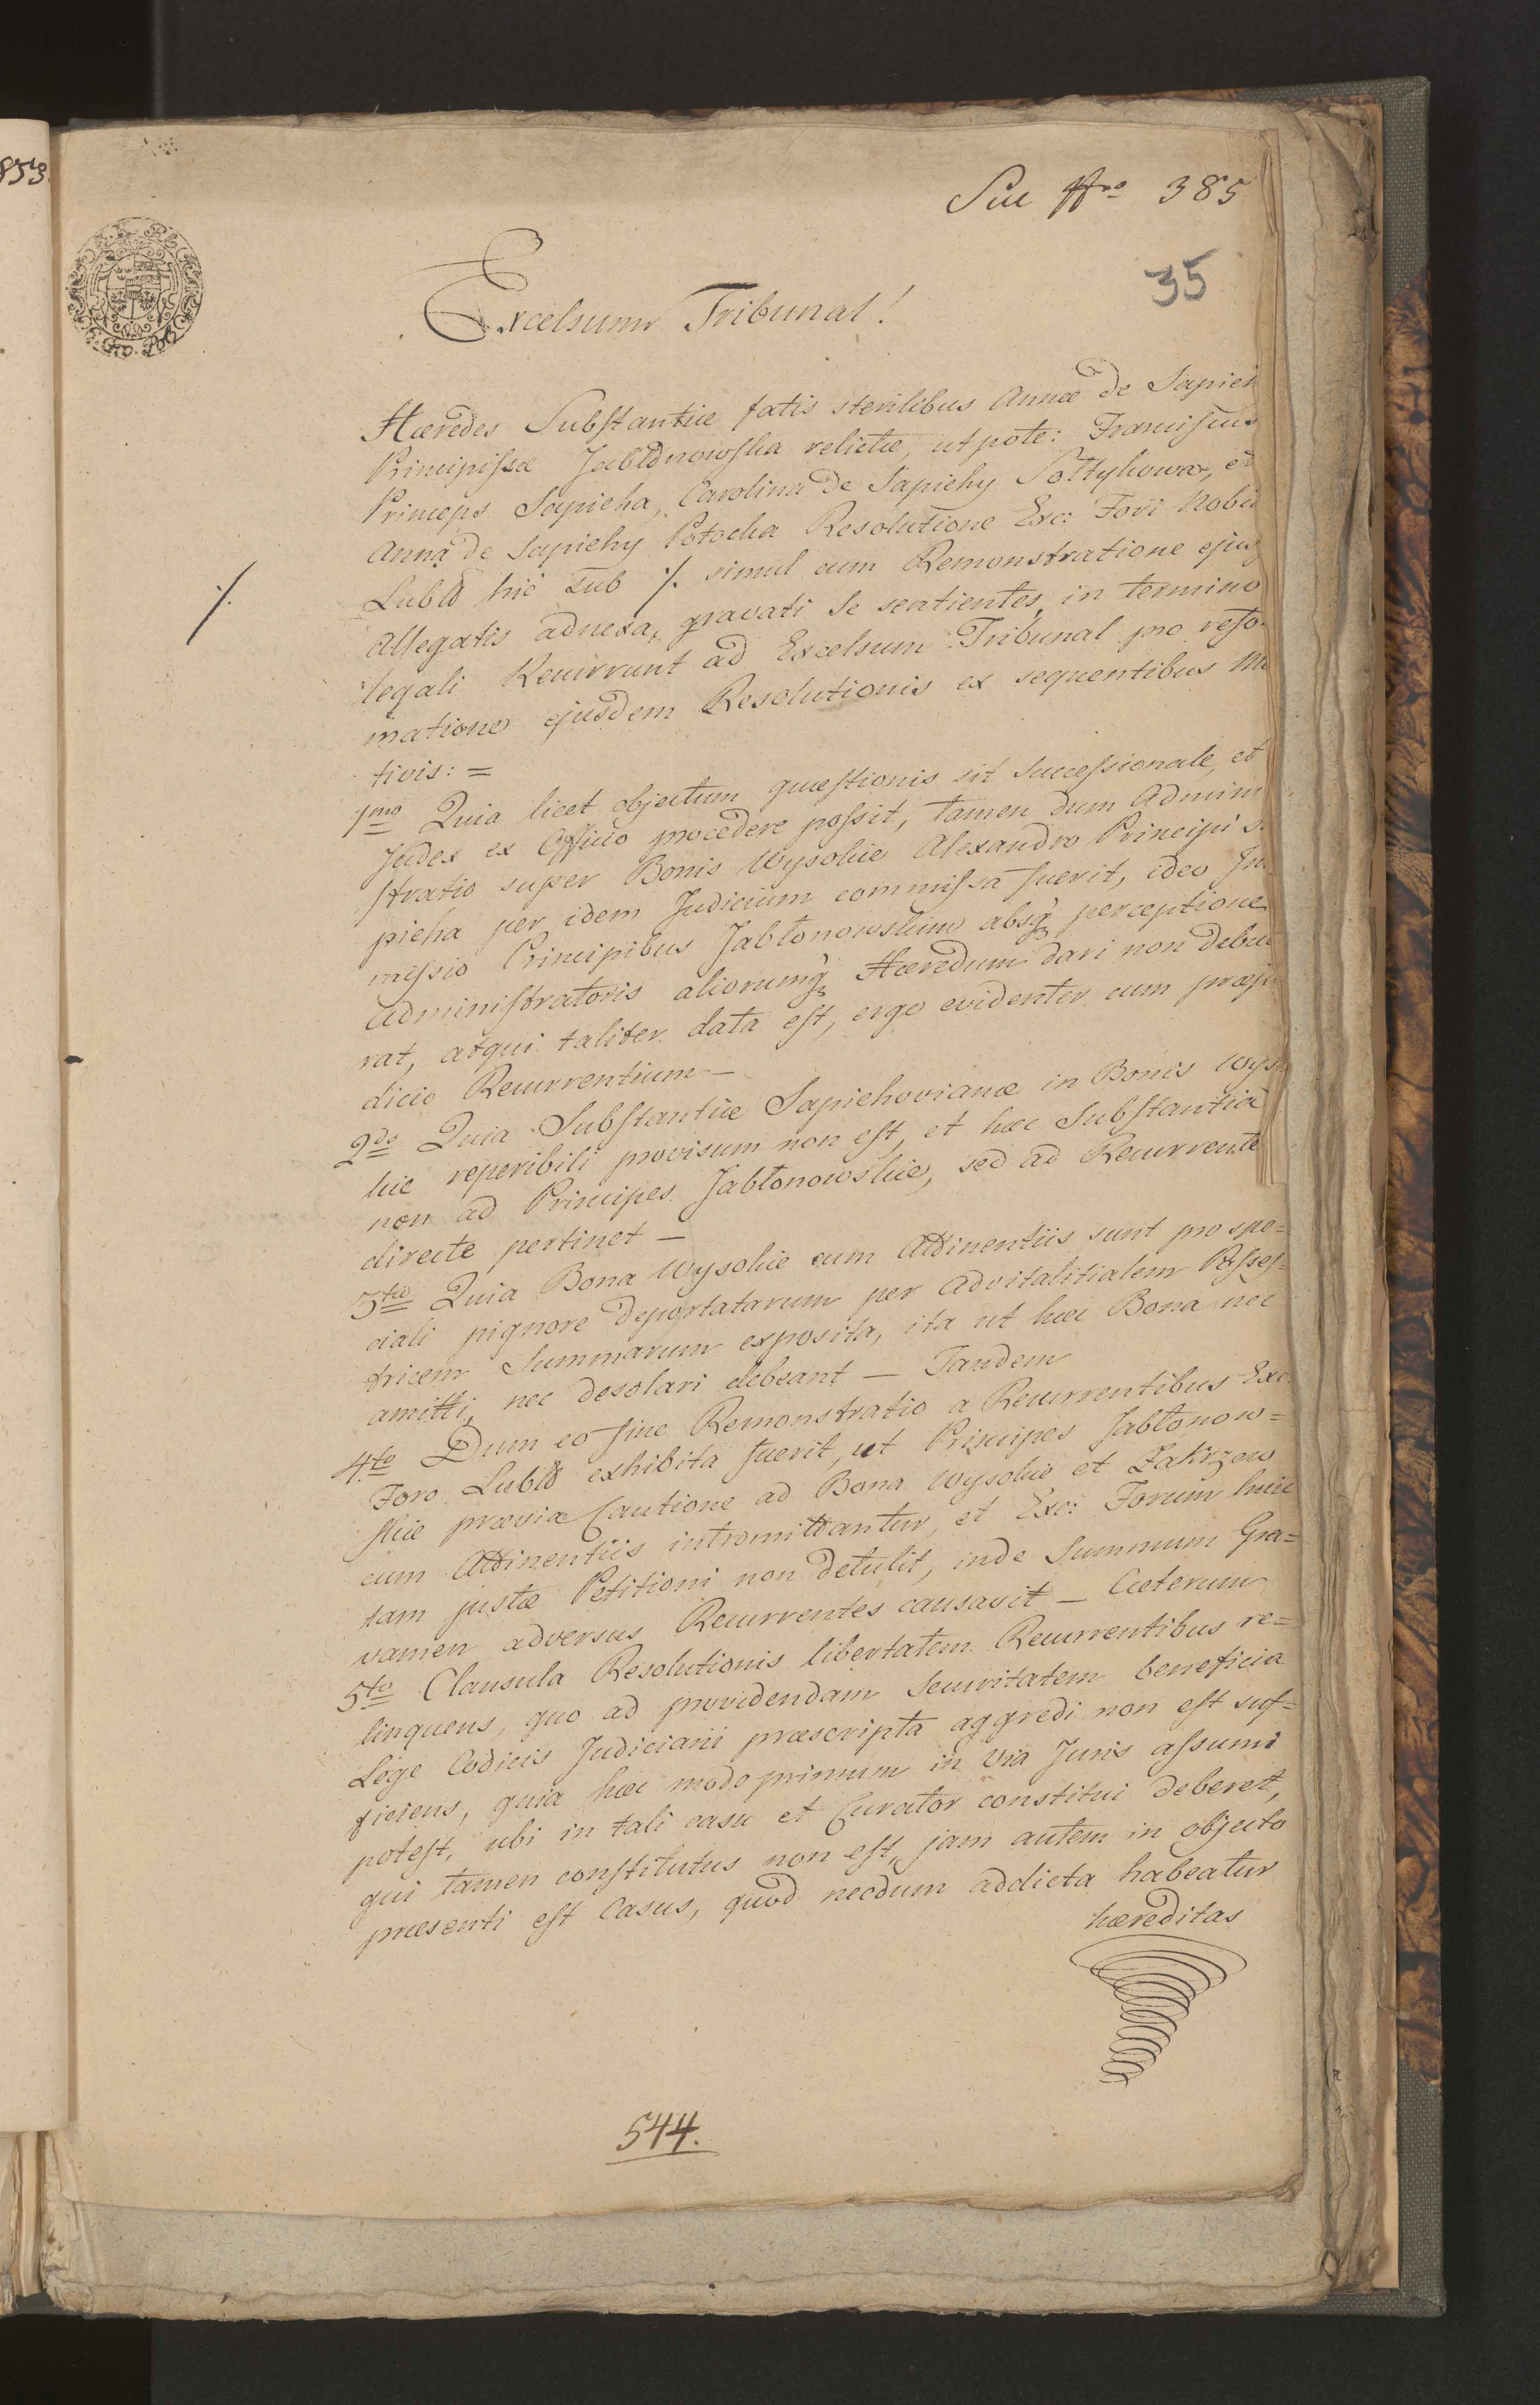 853
Suc Nro 385
35
Excelsum Tribunal!
Hæredes Substantiæ fatis sterilibus Annæ de Sapieh
Principissæ Jabłonowska relictæ, utpote: Franciscus
Princeps Sapieha, Carolina de Sapiehy Sołtykowa, et
Anna de Sapiehy Potocka Resolutione Exc: Fori Nobil
Lubln hic sub ·/. simul cum Remonstratione ejusq
·/.
Allegatis adnexa, gravati se sentientes, in termino
legali Recurrunt ad Excelsum Tribunal pro refor
matione ejusdem Resolutionis ex sequentibus Mo
tivis: =
1mo Quia licet objectum quæstionis sit successionale, et
Judex ex Officio procedere possit, tamen dum Admini
stratio super Bonis Wysokie Alexandro Principi S.
pieha per idem Judicium commissa fuerit, ideo In
missio Principibus Jabłonowskim absq perceptione
Administratoris aliorumq Hæredum dari non debue
rat, atqui taliter data est, ergo evidenter cum præju
dicio Recurrentium —
2do Quia Substantiæ Sapiehovianæ in Bonis Wyso
kie reperibili provisum non est, et hæc Substantia
non ad Principes Jabłonowskie, sed ad Recurrente
directe pertinet —
3tio Quia Bona Wysokie cum Attinentiis sunt pro spe=
ciali pignore deportatarum per advitalitialem Posses=
tricem Summarum exposita, ita ut hæc Bona nec
amitti, nec desolari debeant — Tandem
4to Dum eo fine Remonstratio a Recurrentibus Exc.
Foro Lubln exhibita fuerit, ut Principes Jabłonow=
skie prævia Cautione ad Bona Wysokie et Zakrzew
cum Attinentiis intromittantur, et Exc: Forum huic
tam justæ Petitioni non detulit, inde Summum Gra=
vamen adversus Recurrentes causavit — Cæterum
5to Clausula Resolutionis libertatem Recurrentibus re=
linquens, quo ad providendam Securitatem beneficia
Lege Codicis Judiciarii præscripta aggredi non est suf=
ficiens, quia hæc modo primum in via Juris assumi
potest, ubi in tali casu et Curator constitui deberet,
qui tamen constitutus non est, jam autem in objecto
præsenti est Casus, quod necdum addicta habeatur
hæreditas
544.